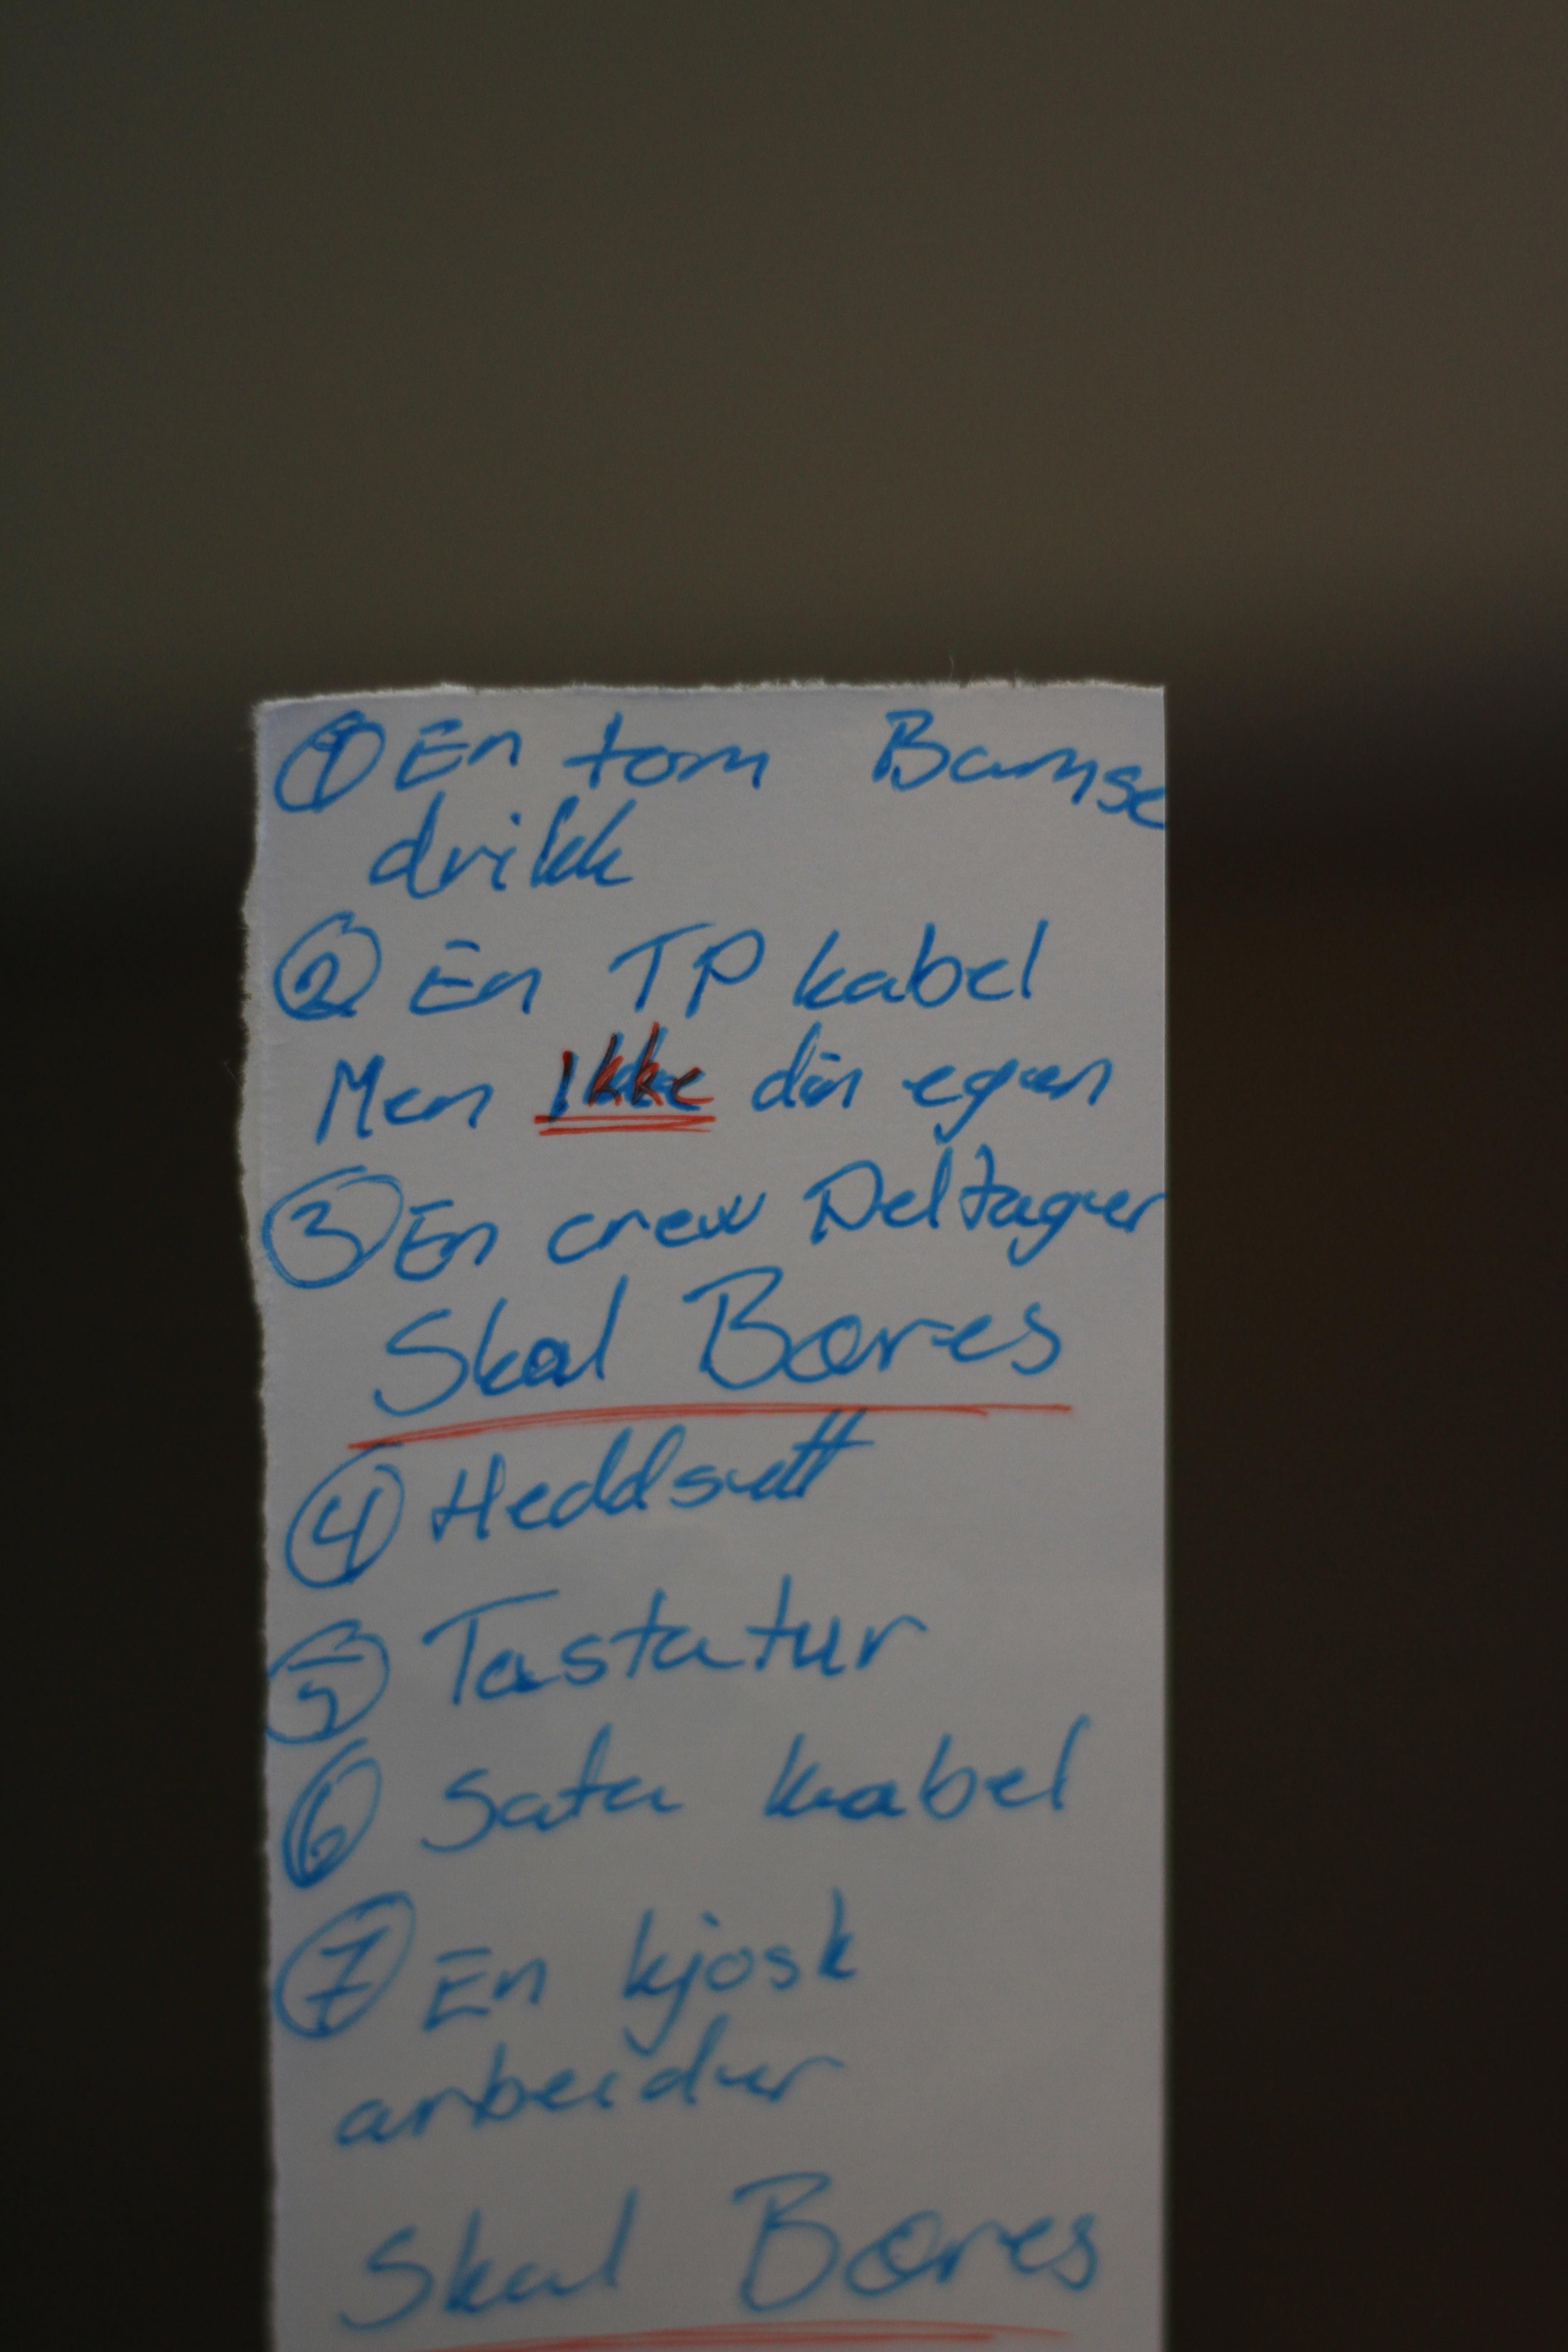 ① En tom Bamse
drikk
② En TP kabel
Men Ikke din egen
③ En crew Deltager
Skal Bæres
④ Heddsett
⑤ Tastatur
⑥ Sata kabel
⑦ En kjosk
arbeider
Skal Bæres